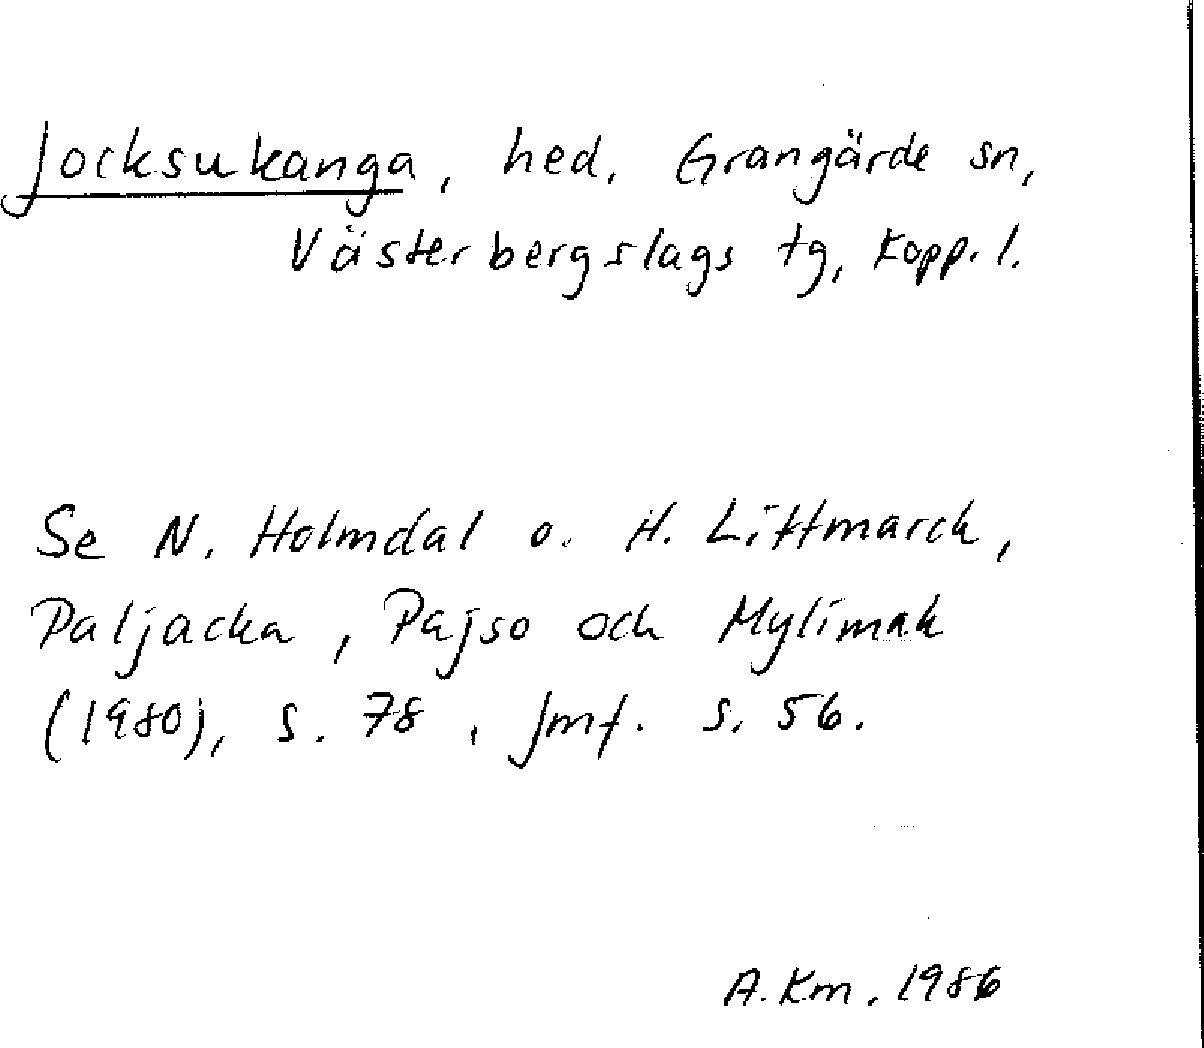 Jocksukanga, hed, Grangärde sn,
Västerbergslags tg, Kopp. l.
Se N. Holmdal o. H. Littmarck,
Paljacka, Pajso och Mylimak
(1980), s. 78, jmf. s. 56.
A. Km. 1986